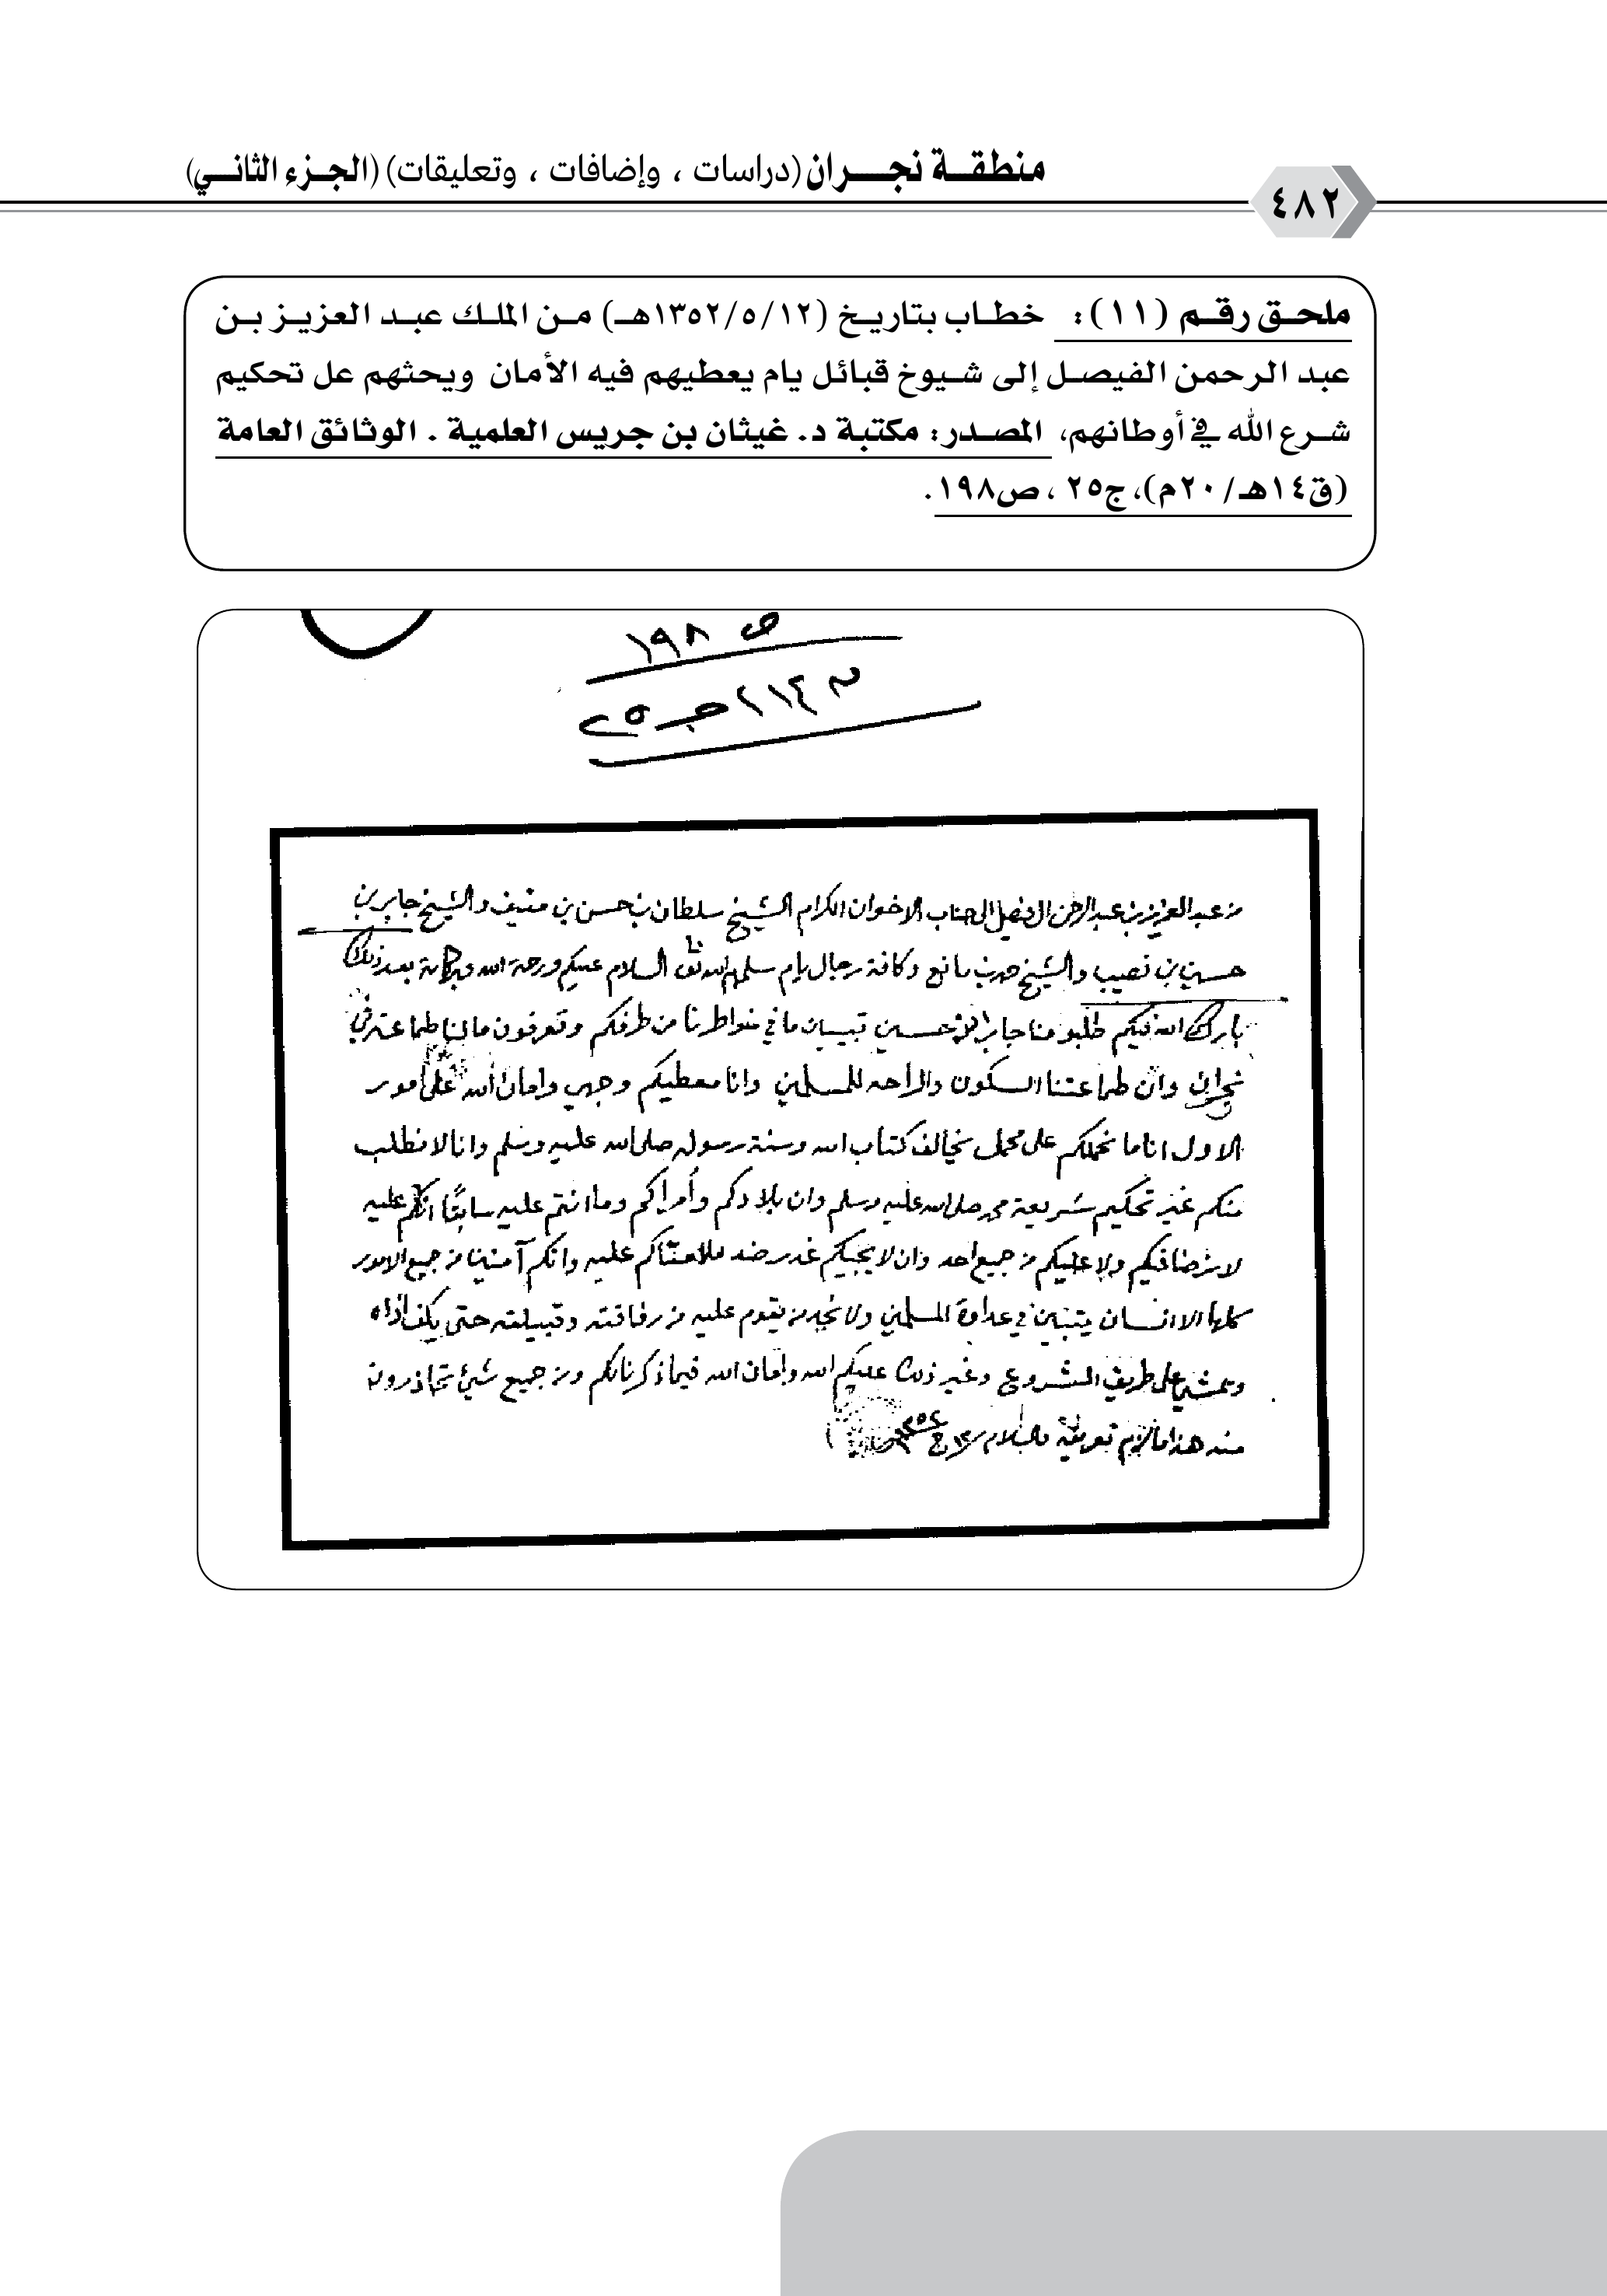 منطقة نجران (دراسات ، وإضافات ، وتعليقات) (الجزء الثاني)
٤٨٢
ملحق رقم (١١): خطاب بتاريخ (١٣٥٢/٥/١٢هـ) من الملك عبد العزيز بن
عبد الرحمن الفيصل إلى شيوخ قبائل يام يعطيهم فيه الأمان ويحثهم عل تحكيم
شرع الله في أوطانهم، المصدر: مكتبة د. غيثان بن جريس العلمية . الوثائق العامة
(ق١٤هـ/٢٠م)، ج٢٥ ، ص١٩٨.
ص ١٩٨
جـ ٢٥
من عبدالعزيز بن عبدالرحمن ال فيصل الى جناب الاخوان الكرام الشيخ سلطان بن حسن بن منيف والشيخ جابر بن
حسين بن نصيب والشيخ حمد بن مانع وكافة رجال يام سلمهم الله السلام عليكم ورحمة الله وبركاته بعد ذلك
بارك الله فيكم طلبو منا جابر بن حسين تبيان ما في خواطرنا من طرفكم وتعرفون مالنا طماعة في
نجران وان طماعتنا السكون والراحه للمسلمين وانا معطيكم وجهي وامان الله على امور
الاول انا ما نحملكم على محمل يخالف كتاب الله وسنة رسوله صلى الله عليه وسلم وانا لا نطلب
منكم غير تحكيم شريعة محمد صلى الله عليه وسلم وان بلادكم وأمراكم وما انتم عليه سابقًا انكم عليه
لا عليكم من جميع احد وان لا يجيكم غدر ضد عليه وانكم آمنين من جميع الامور
كلها الا انسان يتبين في عداوة المسلمين ولا نجد من يقوم عليه من رفاقته وقبيلته حتى يكف اذاه
على طريق المشروع وغير ذلك عليكم الله وامان الله فيما ذكرنا لكم ومن جميع شيئ تحاذرون
منه هذا ما لزم تعريفه والسلام